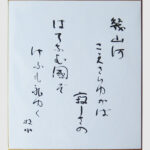 幾山河
こえさりゆかば
寂しさの
はてなむ國そ
けふも旅ゆく
牧水